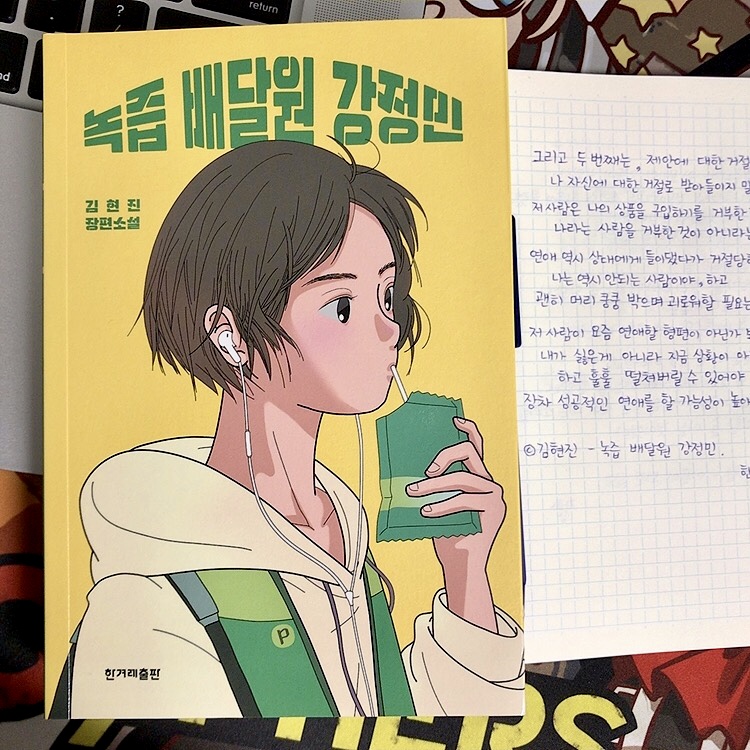 녹즙 배달원 강정민
김현진
장편소설
P
한겨레출판
그리고 두번째는, 제안에 대한 거절
나 자신에 대한 거절로 받아들이지 말
저사람은 나의 상품을 구입하기를 거부한
나라는 사람을 거부한것이 아니라는
연애 역시 상대에게 들이댔다가 거절당하
나는 역시 안되는 사람이야, 하고
괜히 머리 쿵쿵 박으며 괴로워할 필요는
저 사람이 요즘 연애할 형편이 아닌가 보
내가 싫은게 아니라 지금 상황이 아
하고 훌훌 떨쳐버릴 수 있어야
장차 성공적인 연애를 할 가능성이 높아
©김현진 - 녹즙 배달원 강정민.
한
return
?